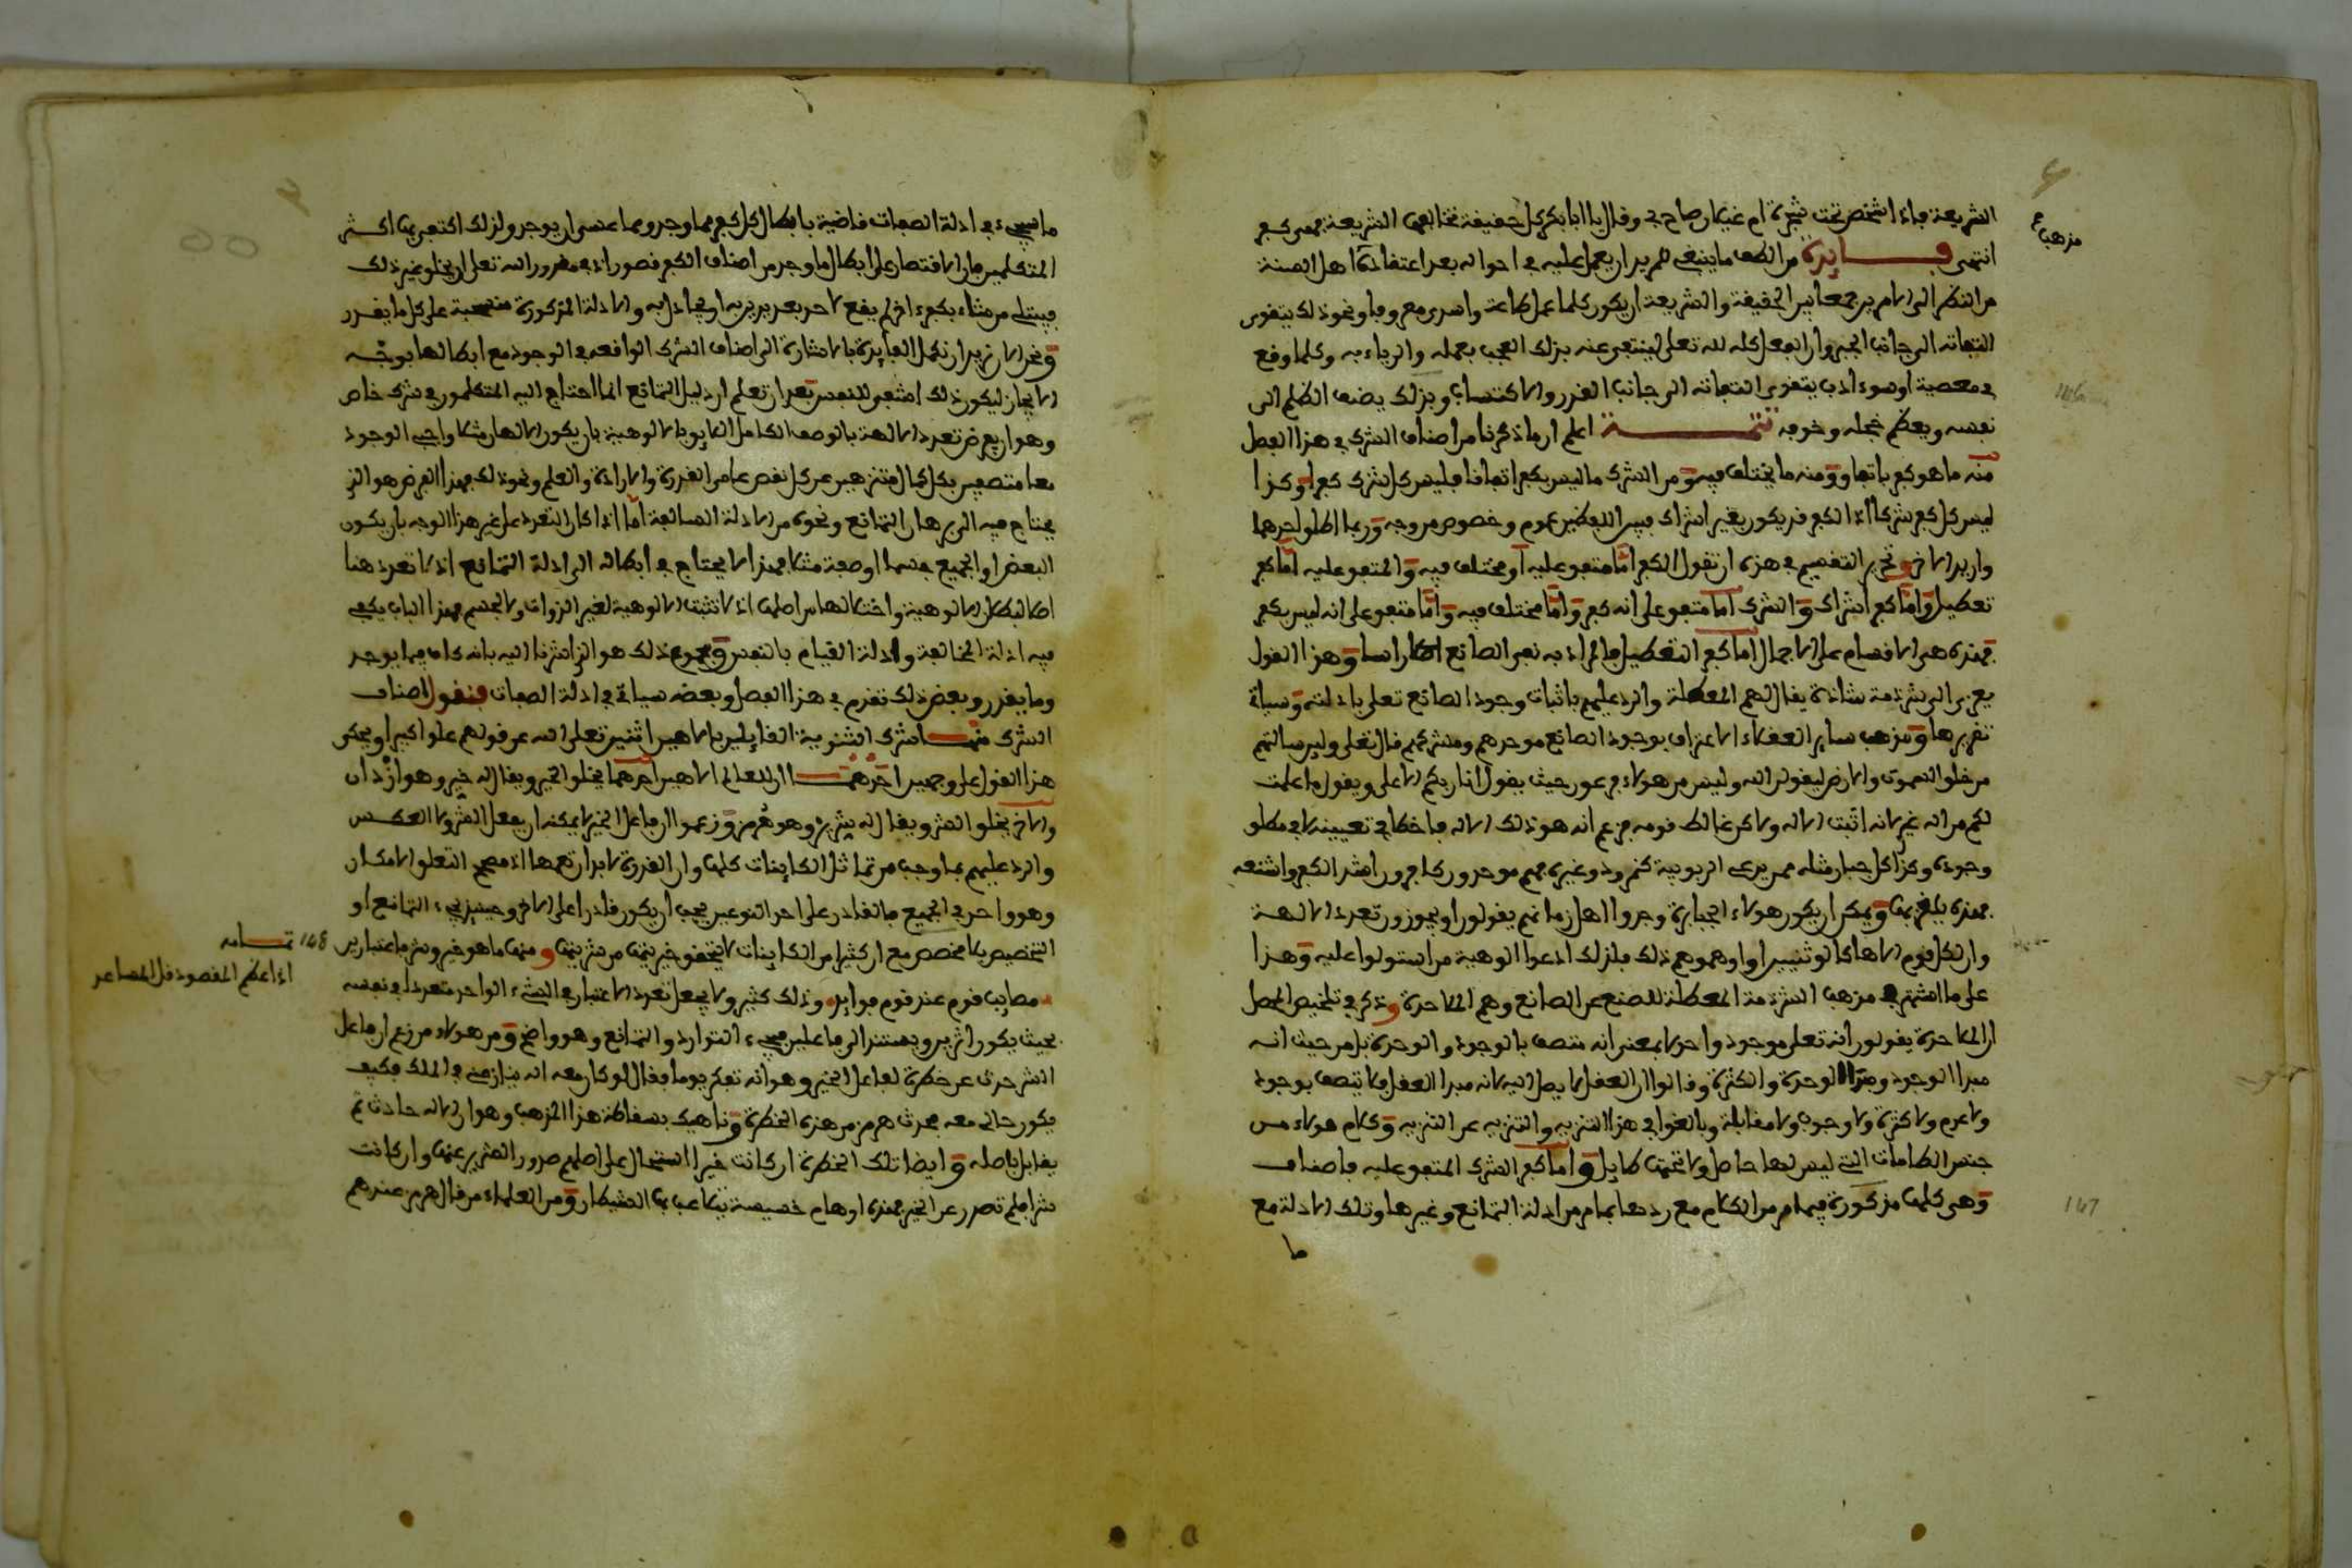 الشريعة فاذا شخص تحت شجرة ام غيلان صاح بي وقال يا ابا بكر كل حقيقة تخالف الشريعة فهي كفر
انتهى فــائدة من الطف ما ينبغي للمريد ان يعمل عليه في احواله بعد اعتقاده اهل السنة
من النظر التام بين معاني الحقيقة والشريعة ان يكون كلما عمل طاعة واسدى معروفا ونحو ذلك يتقوى
التفاته الى جانب الجبر وان الفعل كله لله تعلى لينتفي عنه بذلك العجب بعمله والرياء به وكلما وقع
في معصية او سوء ادب يتقوى التفاته الى جانب القدر والاكتساب وبذلك يضيف الظلم الى
نفسه ويعظم خجله وخوفه تتمـــة اعلم ان ما ذكرنا من اصناف الشرك في هذا الفصل
منه ما هو كفر باتفاق ومنه ما يختلف فيه ومن الشرك ما ليس بكفر اتفاقا فليس كل شرك كفرا وكذا
ليس كل كفر شركا اذ الكفر قد يكون بغير اشراك فبين اللفظين عموم وخصوص من وجه وربما اطلق احدهما
واريد الاخر وتحرير التقسيم في هذه ان تقول الكفر اما متفق عليه او مختلف فيه والمتفق عليه اما كفر
تعطيل واما كفر اشراك والشرك اما متفق على انه كفر واما مختلف فيه واما متفق على انه ليس بكفر
فهذه هي الاقسام على الاجمال اما كفر التعطيل فالمراد به نفي الصانع انكارا راسا وهذا القول
يعزى الى شرذمة شاذة يقال لهم المعطلة والرد عليهم باثبات وجود الصانع تعلى بادلته وسياتي
تقريرها ومذهب سائر العقلاء الاعتراف بوجود الصانع موحدهم ومشركهم قال تعلى ولين سالتهم
من خلق السموات والارض ليقولن الله وليس من هولاء فرعون حيث يقول انا ربكم الاعلى ويقول ما علمت
لكم من اله غيري لانه اثبت الاله ولاكن غالط قومه فزعم انه هو ذلك الاله فاخطا في تعيينه لا في مطلق
وجوده وكذا كل جبار مثله ممن يدعي الربوبية كنمرود وغيره فهم موحدون كافرون اشد الكفر واشنعه
وان لكل قوم الاها كالوثنيين او اوهموهم ذلك فلذلك ادعوا الوهية من استولوا عليه وهذا
على ما اشتهر في مذهب الشرذمة المعطلة للصنع عن الصانع وهم الملاحدة وذكر في تلخيص المحصل
ان الملاحدة يقولون انه تعلى موجود واحد لا بمعنى انه متصف بالوجود والوحدة بل من حيث انه
مبدا الوجود ومبدا الوحدة والكثرة وقالوا ان العقل لا يصل اليه لانه مبدا العقل فلا يتصف بوجود
ولا عدم ولا كثرة ولا وجوب ولا مقابله وبالغوا في هذا التنزيه والتنزيه عن التنزيه وكلام هولاء من
جنس الطامات التي ليس لها حاصل ولا تحتها طايل واما كفر الشرك المتفق عليه فاصناف
وهي كلها مذكورة فيما مر من الكلام مع ردها بما مر من ادلة التمانع وغيرها وتلك الادلة مع
ما
مذهب
147
ما سيجيء في ادلة الصفات قاضية بابطال كل كفر مما وجد ومما عسى ان يوجد ولذلك اكتفى بها اكثر
المتكلمين فان الاقتصار على ابطال ما وجد من اصناف الكفر قصور اذ في مقدور الله تعلى ان يخلق غير ذلك
فيبتلي من شاء بكفر اخر لم يقع لاحد بعد يدين به او يجادل به والادلة المذكورة منسحبة على كل ما يقدر
ونحن الان نريد ان نكمل الفائدة بالاشارة الى اصناف الشرك الواقعة في الوجود مع ابطالها بوجه
الايجاز ليكون ذلك اشفى للنفس بعد ان تعلم ان دليل التمانع انما احتاج اليه المتكلمون في شرك خاص
وهو ان يفرض تعدد الالهة بالوصف الكامل اللايق بالالوهية بان يكون الالهان مثلا واجبي الوجود
معا متصفين بكل كمال متنزهين عن كل نقص عامي القدرة والارادة والعلم ونحو ذلك فهذا الفرض هو الذي
يحتاج فيه الى برهان التمانع ونحوه من الادلة السالفة اما اذا كان التعدد على غير هذا الوجه بان يكون
البعض او الجميع جسما او صفة مثلا فهذا لا يحتاج في ابطاله الى ادلة التمانع اذ لا تعدد هنا
اصلا لبطلان الالوهية واختلالها من اصلها اذ لا تثبت الالوهية لغير الذوات ولا لجسم فهذا الباب يكفي
فيه ادلة المخالفة وادلة القيام بالنفس ومجموع ذلك هو الذي اشرنا اليه بانه كاف فيما يوجد
وما يقدر وبعض ذلك تقدم في هذا الفصل وبعضه سياتي في ادلة الصفات فنقول اصناف
الشرك منها شرك الثنوية القائلين بالاهين اثنين تعلى الله عن قولهم علوا كبيرا ويحكى
هذا القول على وجهين احدهما ان للعالم الاهين احدهما يخلق الخير ويقال له خير وهو ازدان
والاخر يخلق الشر ويقال له شرير وهو هرمز وزعموا ان فاعل الخير لا يمكنه ان يفعل الشر ولا العكس
والرد عليهم بما وجب من تماثل الكاينات كلها وان القدرة لا بد ان تعمها اذ مصحح التعلق الامكان
وهو واحد في الجميع فالقادر على احد النوعين يجب ان يكون قادرا على الاخر وحينئذ يجيء التمانع او
التخصيص بلا مخصص مع ان كثيرا من الكاينات لا يتحقق خيريتها من شريتها ومنها ما هو خير وشر باعتبارين
مصايب قوم عند قوم فوايد وذلك كثير ولا يجعل تعدد الاعتبار في الشيء الواحد متعددا في نفسه
بحيث يكون اثرين ويستند الى فاعلين فيجيء التوارد والتمانع وهو واضح ومن هولاء من زعم ان فاعل
الشر حدث عن خطرة لفاعل الخير وهو انه تفكر يوما فقال لو كان معه اله ينازعني في الملك فكيف
يكون حالي معه فحدث هرمز من هذه الخطرة وناهيك بسقاطة هذا المذهب وهو ان الاله حادث ثم
يقابل باصله وايضا تلك الخطرة ان كانت خيرا استحال على اصلهم صدور الشرير عنها وان كانت
شرا فلم تصدر عن الخير فهذه اوهام خسيسة يتلاعب بها الشيطان ومن العلماء من قال هرمز عندهم
148 تمــامه
اذا عظم المقصود قل المساعد